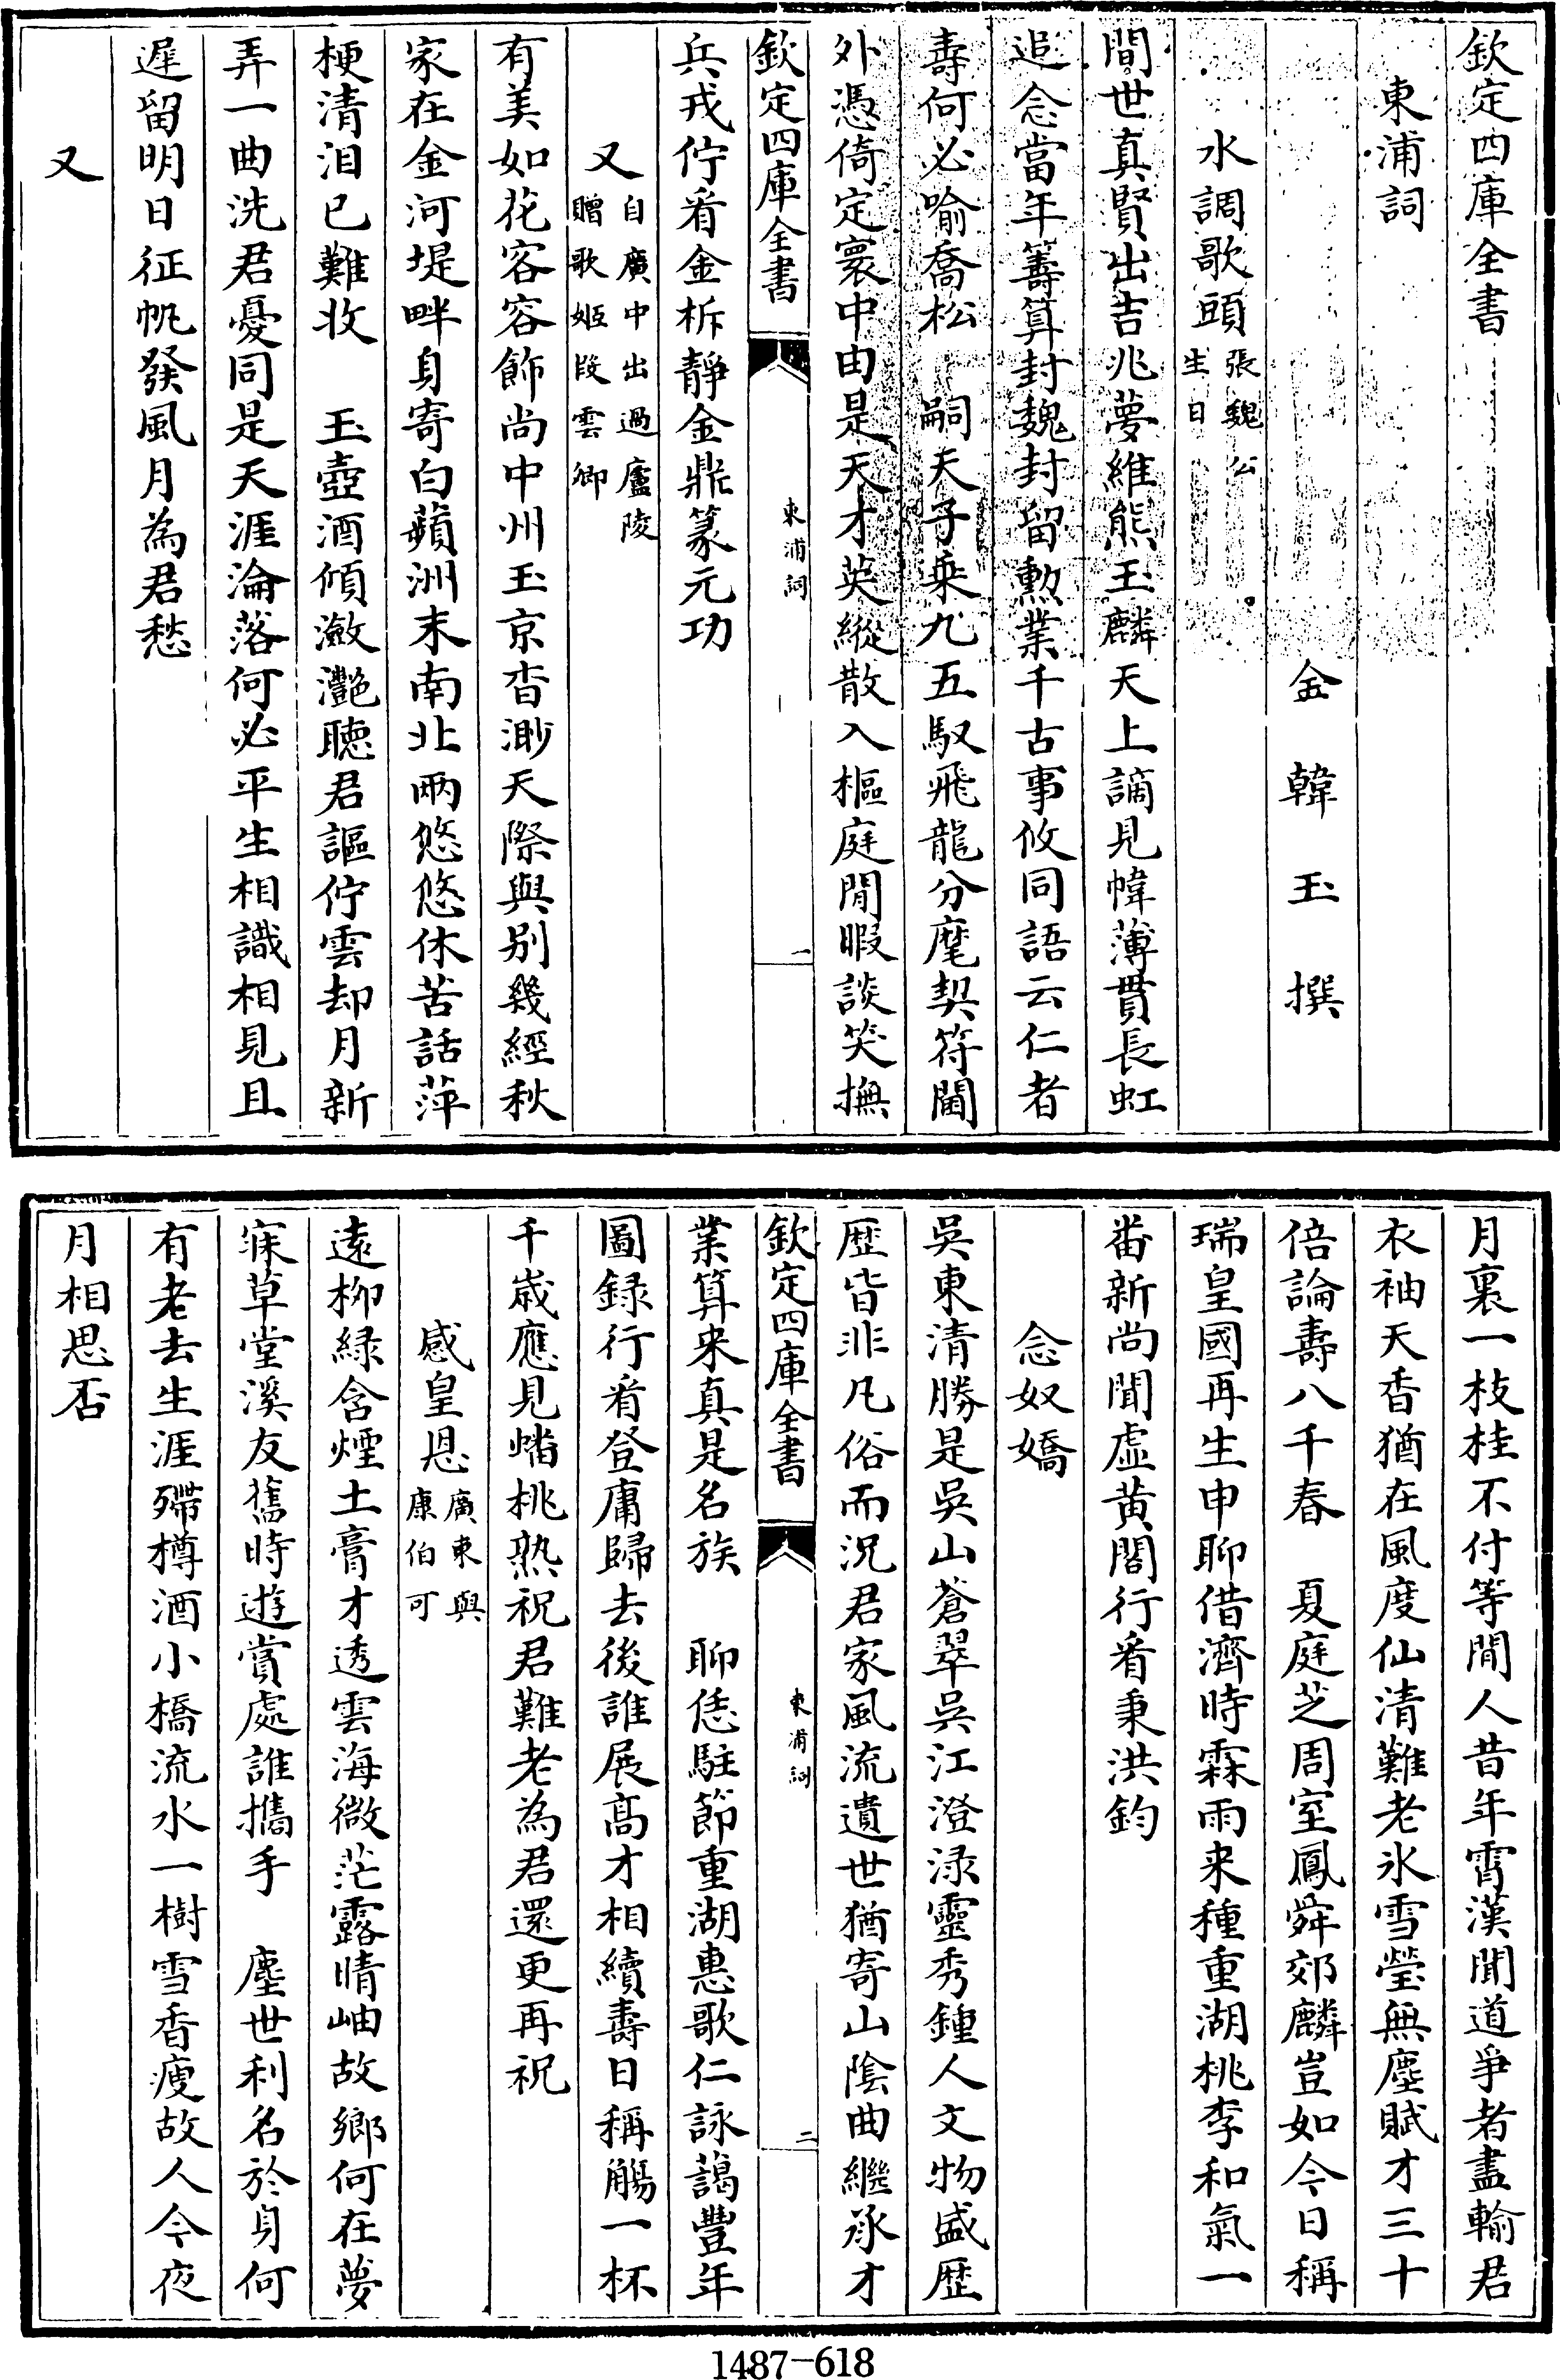 欽定四庫全書
東浦詞
金韓玉撰
水調歌頭張魏公生日
間世真賢出吉兆夢維熊玉麟天上謫見幃薄貫長虹
追念當年籌算封魏封留勲業千古事攸同語云仁者
壽何必喻喬松　嗣天子乗九五馭飛龍分麾契符閫
外憑倚定寰中由是天才英縱散入樞庭閒暇談笑撫
欽定四庫全書
東浦詞
一
兵戎佇㸔金柝靜金鼎篆元功
又自廣中出過廬陵贈歌姬段雲卿
有美如花客容飾尚中州玉京杳渺天際與别幾經秋
家在金河堤畔身寄白蘋洲末南北兩悠悠休苦話萍
梗清泪已難收　玉壺酒傾瀲灧聴君謳佇雲却月新
弄一曲洗君憂同是天涯淪落何必平生相識相見且
遲留明日征帆發風月為君愁
又
月裏一枝桂不付等閒人昔年霄漢聞道爭者盡輸君
衣袖天香猶在風度仙清難老氷雪瑩無塵賦才三十
倍論壽八千春　夏庭芝周室鳳舜郊麟豈如今日稱
瑞皇國再生申聊借濟時霖雨来種重湖桃李和氣一
番新尚聞虚黄閣行㸔秉洪鈞
念奴嬌
吳東清勝是吳山蒼翠吳江澄渌靈秀鍾人文物盛歴
歴皆非凡俗而況君家風流遺世猶寄山陰曲繼承才
欽定四庫全書
東浦詞
二
業算来真是名族　聊恁駐節重湖惠歌仁詠藹豐年
圖録行㸔登庸歸去後誰展髙才相續壽日稱觴一杯
千嵗應見蟠桃熟祝君難老為君還更再祝
感皇恩廣東與康伯可
逺柳緑含煙土膏才透雲海微茫露晴岫故鄉何在夢
寐草堂溪友舊時遊賞處誰攜手　塵世利名於身何
有老去生涯殢樽酒小橋流水一樹雪香瘦故人今夜
月相思否
1487-618